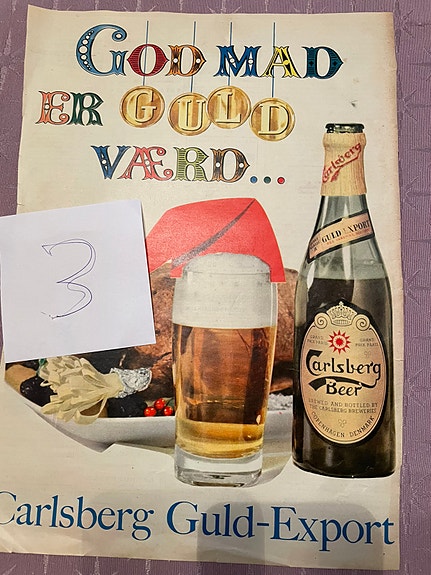 GOD MAD
ER GULD
VÆRD...
3
Carlsberg
GULD EXPORT
GRAND PRIX PARIS
GRAND PRIX PARIS
Carlsberg
Beer
BREWED AND BOTTLED BY
THE CARLSBERG BREWERIES
COPENHAGEN - DENMARK
Carlsberg Guld-Export